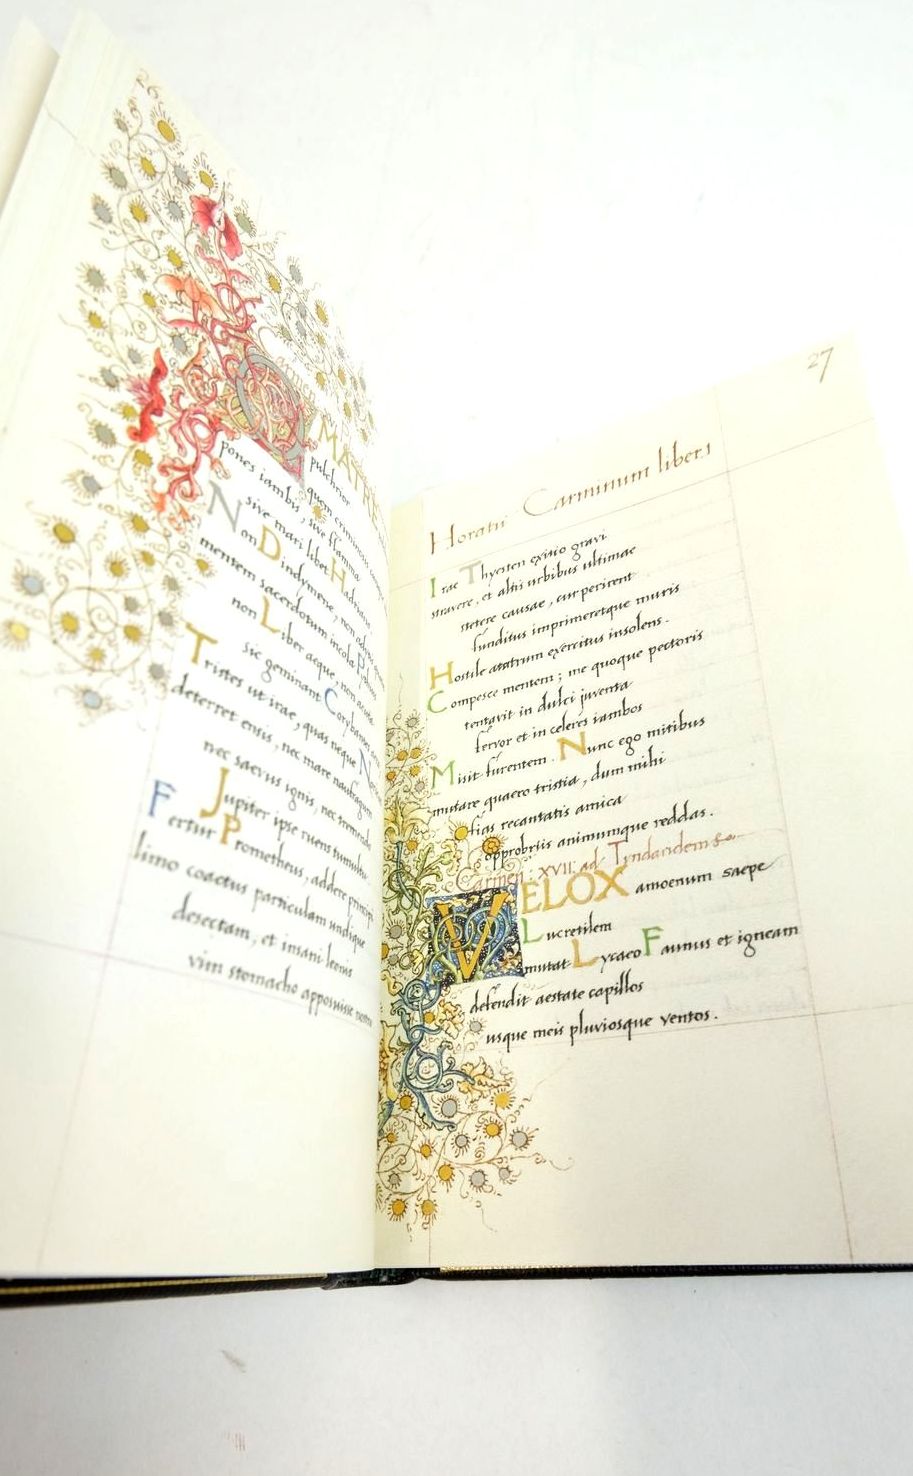 O MATRE pulchrior
quem criminosis
pones iambis, sive flamma
sive mari libet Hadriano
Non Dindymene, non adytis
mentem sacerdotum incola Pythius
non Liber aeque, non acuta
sic geminant Corybantes aera
Tristes ut irae, quas neque
deterret ensis, nec mare naufragum
nec saevus ignis, nec tremendo
Jupiter ipse ruens tumultu
Fertur Prometheus, addere principi
limo coactus particulam undique
desectam, et insani leonis
vim stomacho apposuisse nostro
27
Horatii Carminum liber.1
Irae Thyesten exitio gravi
stravere, et altis urbibus ultimae
stetere causae, cur perirent
funditus imprimeretque muris
Hostile aratrum exercitus insolens.
Compesce mentem; me quoque pectoris
tentavit in dulci juventa
fervor et in celeres iambos
Misit furentem. Nunc ego mitibus
mutare quaero tristia, dum mihi
fias recantatis amica
opprobriis animumque reddas.
Carmen: XVII: ad Tyndaridem
VELOX amoenum saepe
Lucretilem
mutat Lycaeo Faunus et igneam
defendit aestate capillos
usque meis pluviosque ventos.